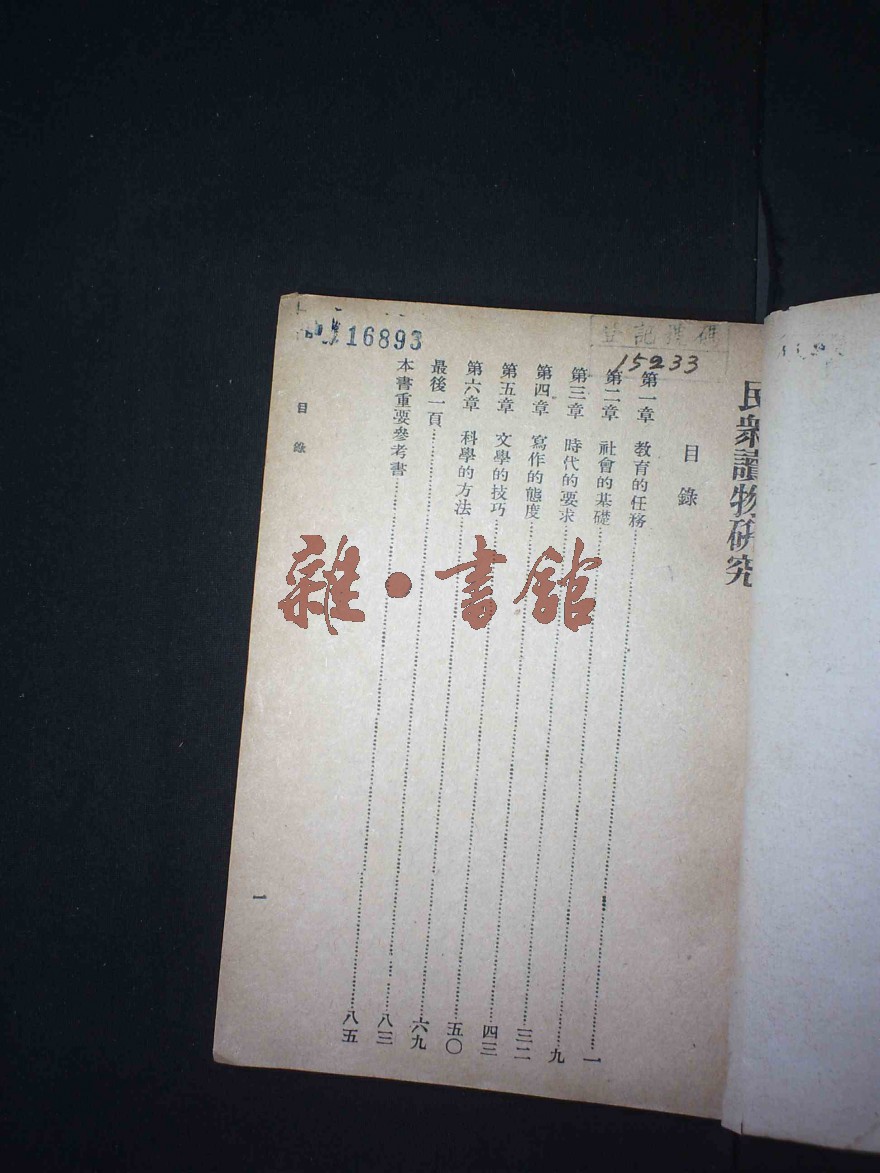 民衆讀物研究
登記號碼
15233
16893
目錄
第一章 教育的任務……一
第二章 社會的基礎……九
第三章 時代的要求……三二
第四章 寫作的態度……四三
第五章 文學的技巧……五〇
第六章 科學的方法……六九
最後一頁……八三
本書重要參考書……八五
目錄
一
雜·書館